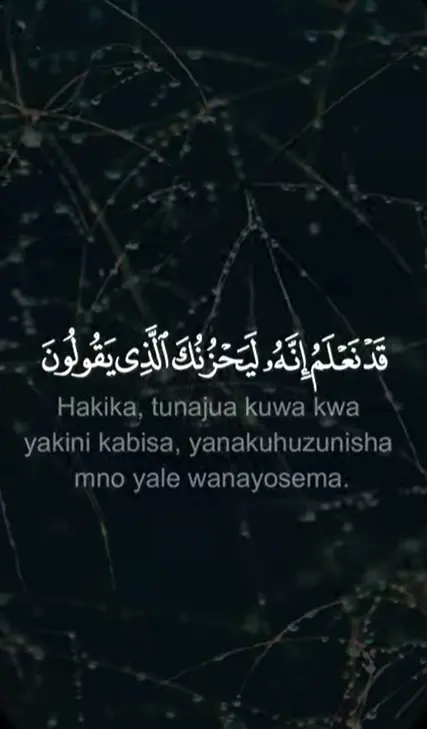 قَدْ نَعْلَمُ إِنَّهُۥ لَيَحْزُنُكَ ٱلَّذِى يَقُولُونَ
Hakika, tunajua kuwa kwa
yakini kabisa, yanakuhuzunisha
mno yale wanayosema.